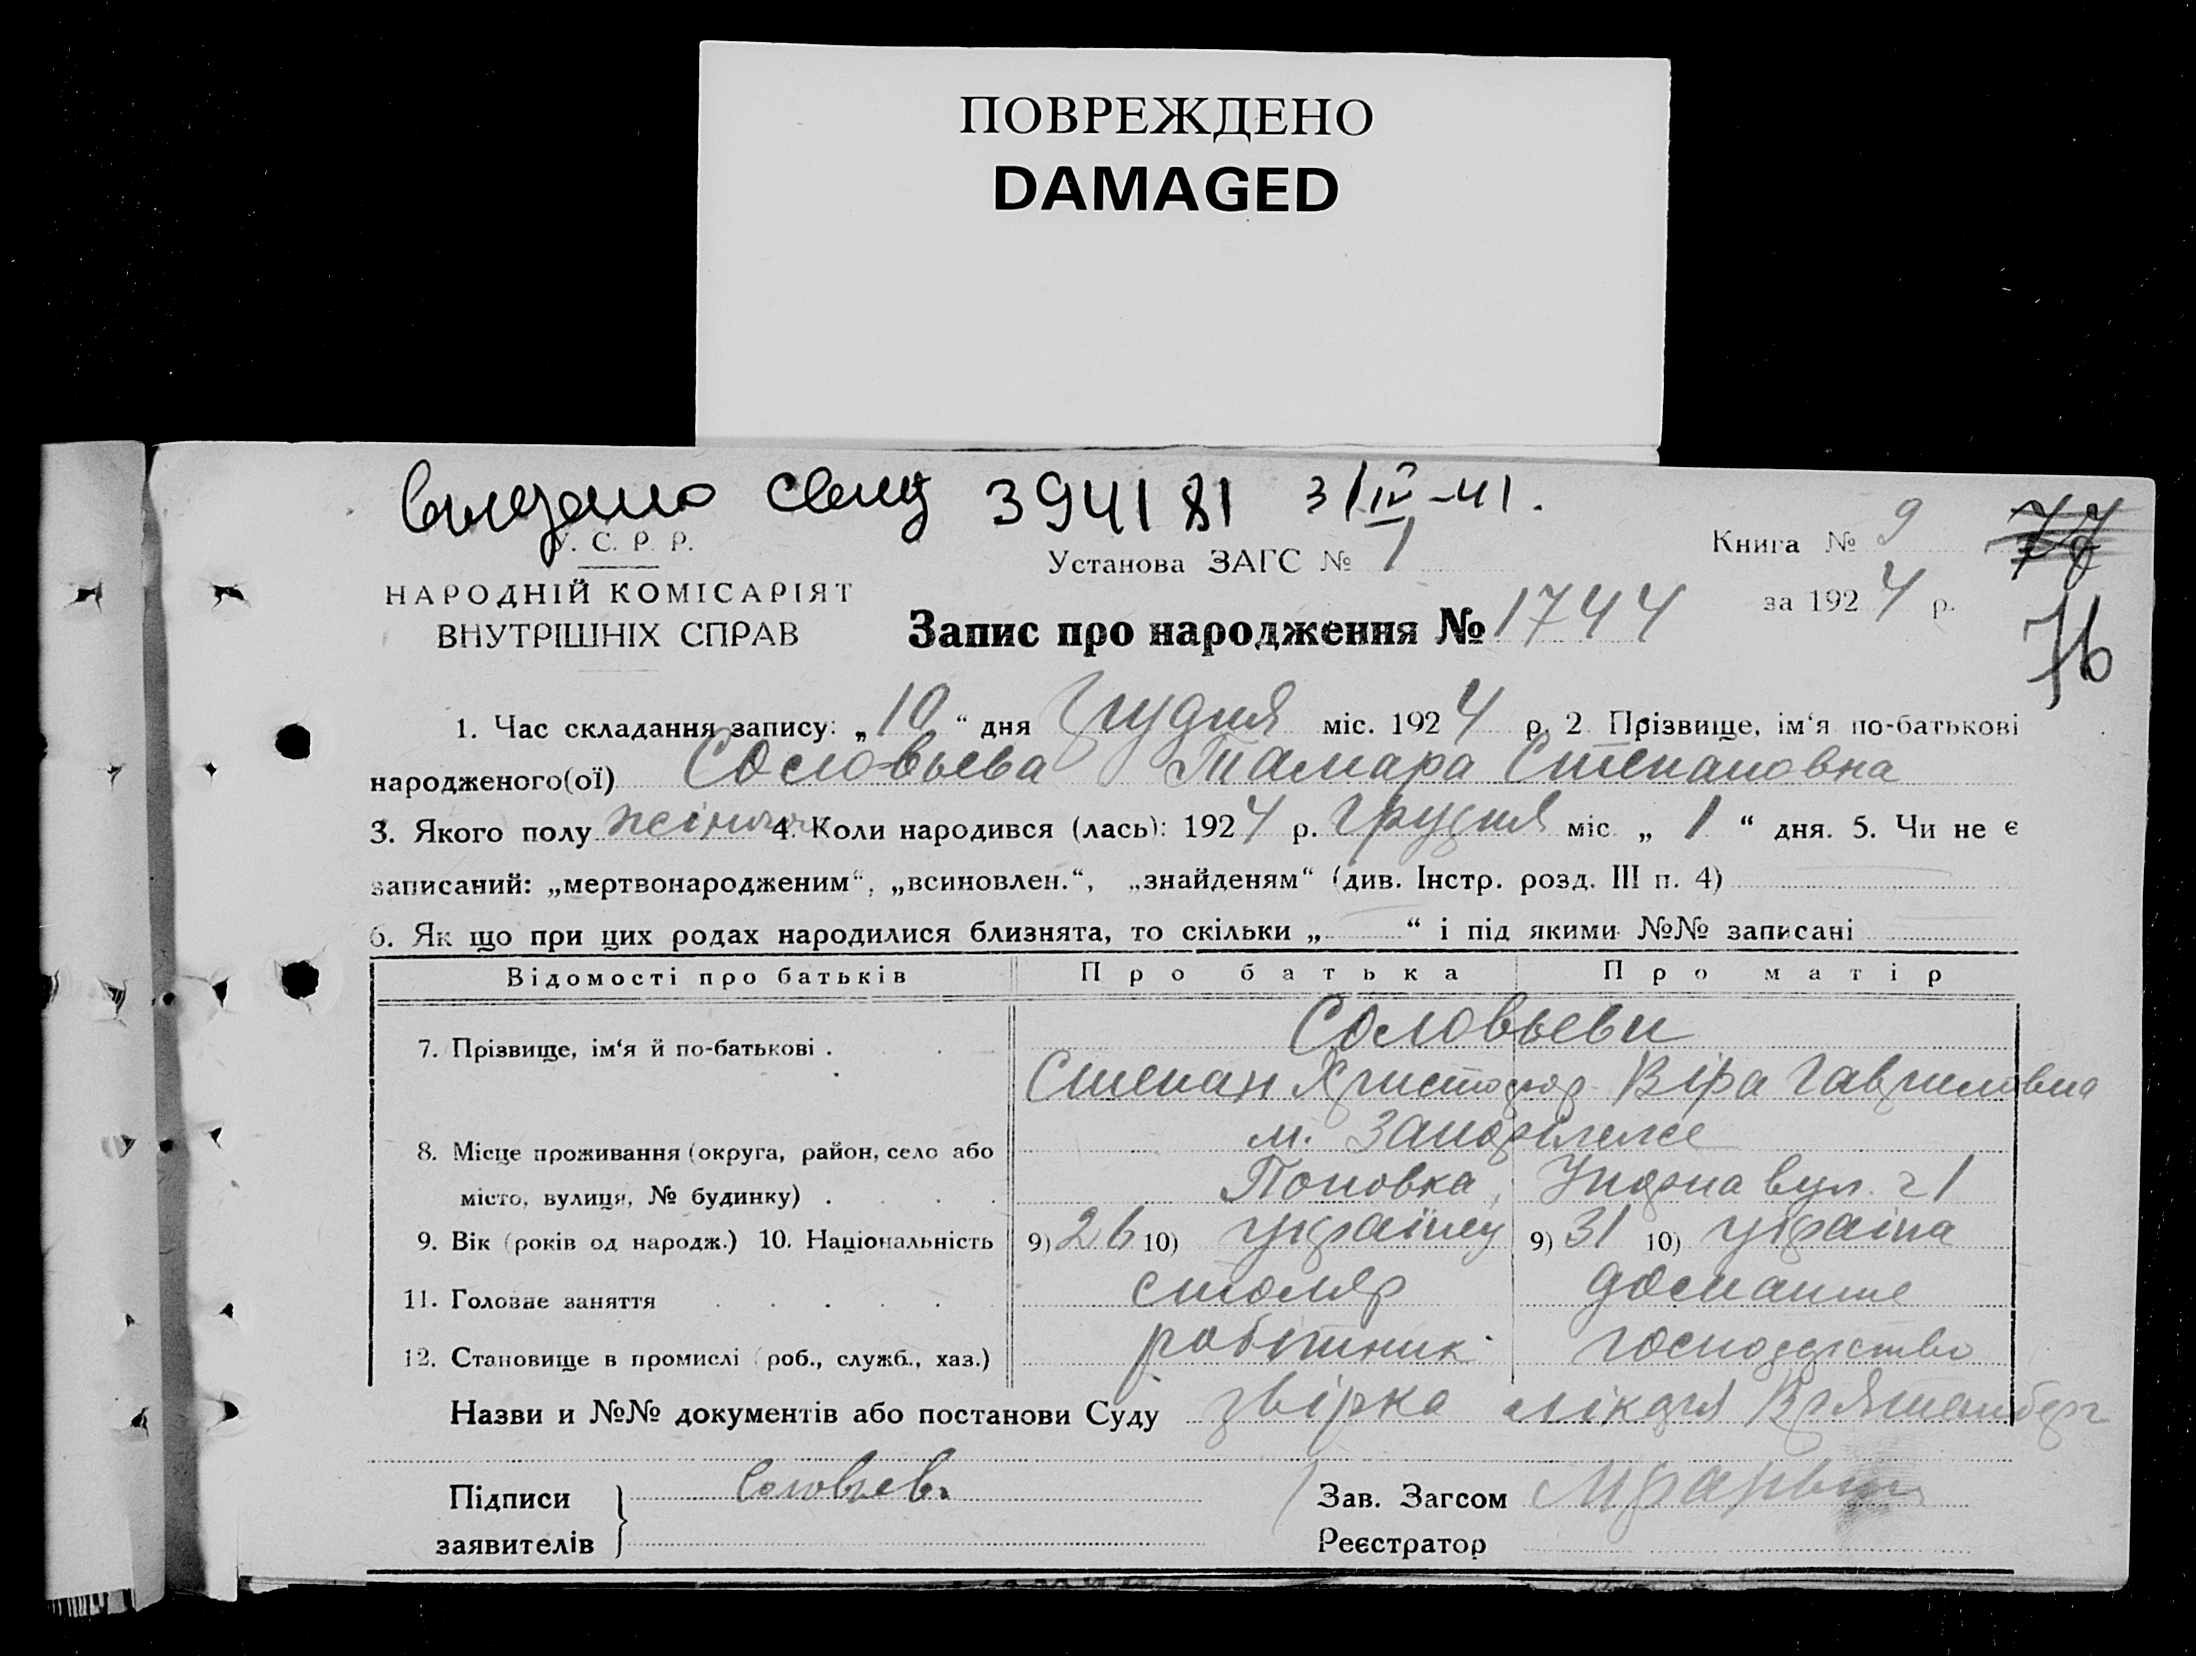 ПОВРЕЖДЕНО
DAMAGED
выдано свид 394181 31/IV-41.
У. С. Р. Р.
Установа ЗАГС № 1
Книга № 9
77
НАРОДНІЙ КОМІСАРІЯТ
за 1924 р.
ВНУТРІШНІХ СПРАВ
Запис про народження № 1744
76
1. Час складання запису: „10“ дня Грудня міс. 1924 р. 2 Прізвище, ім‘я по-батькові
народженого(ої) Соловьева Тамара Степановна
3. Якого полу жіноча 4. Коли народився (лась): 1924 р. грудня міс. „ 1 “ дня. 5. Чи не є
записаний: „мертвонародженим“, „всиновлен.“, „знайденям“ (див. Інстр. розд. III п. 4)
6. Як що при цих родах народилися близнята, то скільки „ “ і під якими №№ записані
Відомості про батьків Про батька Про матір
Соловьеви
7. Прізвище, ім‘я й по-батькові .
Степан Христофор Віра Гавриловна
м. Запоріжже
8. Місце проживання (округа, район, село або
місто, вулиця, № будинку) . Поповка, вул. 21
9. Вік (років од народж.) 10. Національність 9) 26 10) україней 9) 31 10) україна
11. Головне заняття столяр домашне
12. Становище в промислі (роб., служб., хаз.) робітник господарство
Назви и №№ документів або постанови Суду звірка лікаря
Підписи Соловьев. Зав. Загсом
заявителів Реєстратор